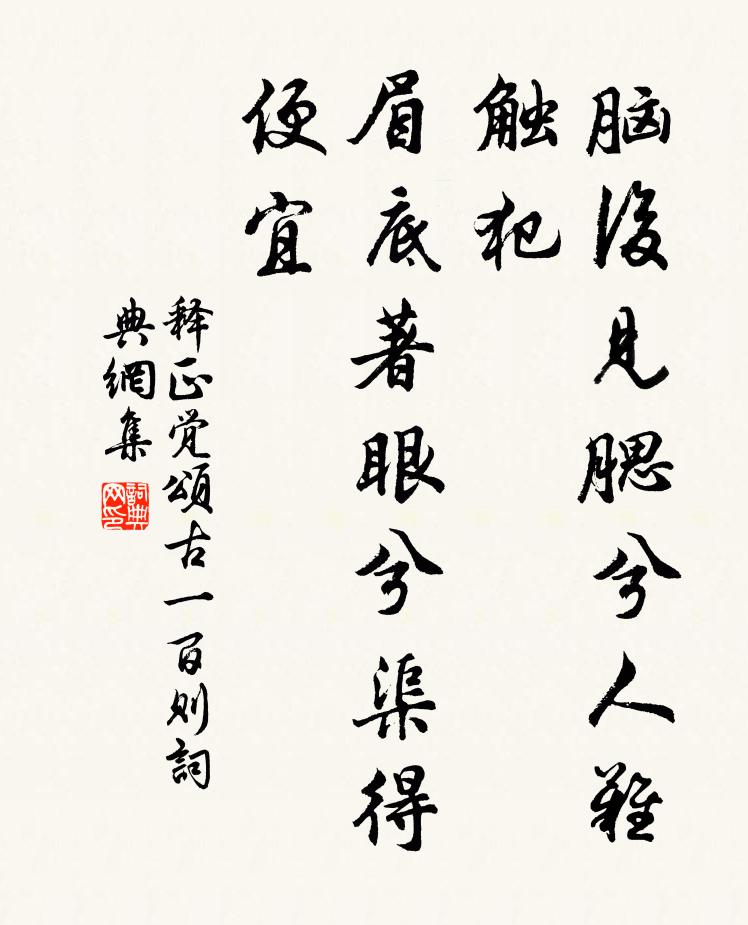 脑後见腮兮人難
触犯
眉底著眼兮渠得
便宜
释正觉頌古一百则詞
典網集
詞典
网印